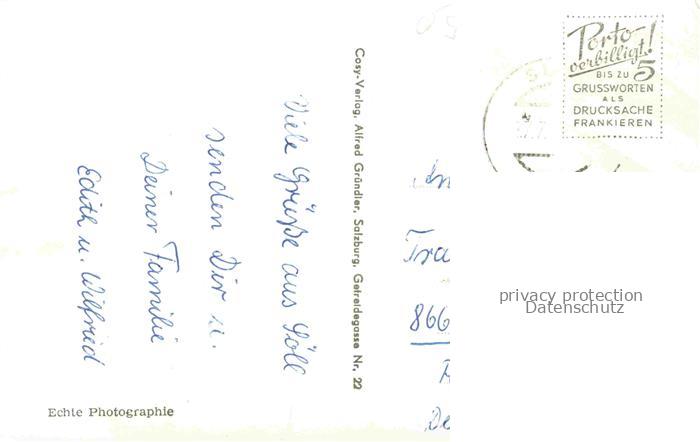 Viele Grüße aus Söll
senden Dir u.
Deiner Familie
Edith u. Wilfried
Echte Photographie
Cosy-Verlag, Alfred Gründler, Salzburg, Getreidegasse Nr. 22
Porto
verbilligt!
BIS ZU 5
GRUSSWORTEN
ALS
DRUCKSACHE
FRANKIEREN
An
Tra
866
De
privacy protection
Datenschutz